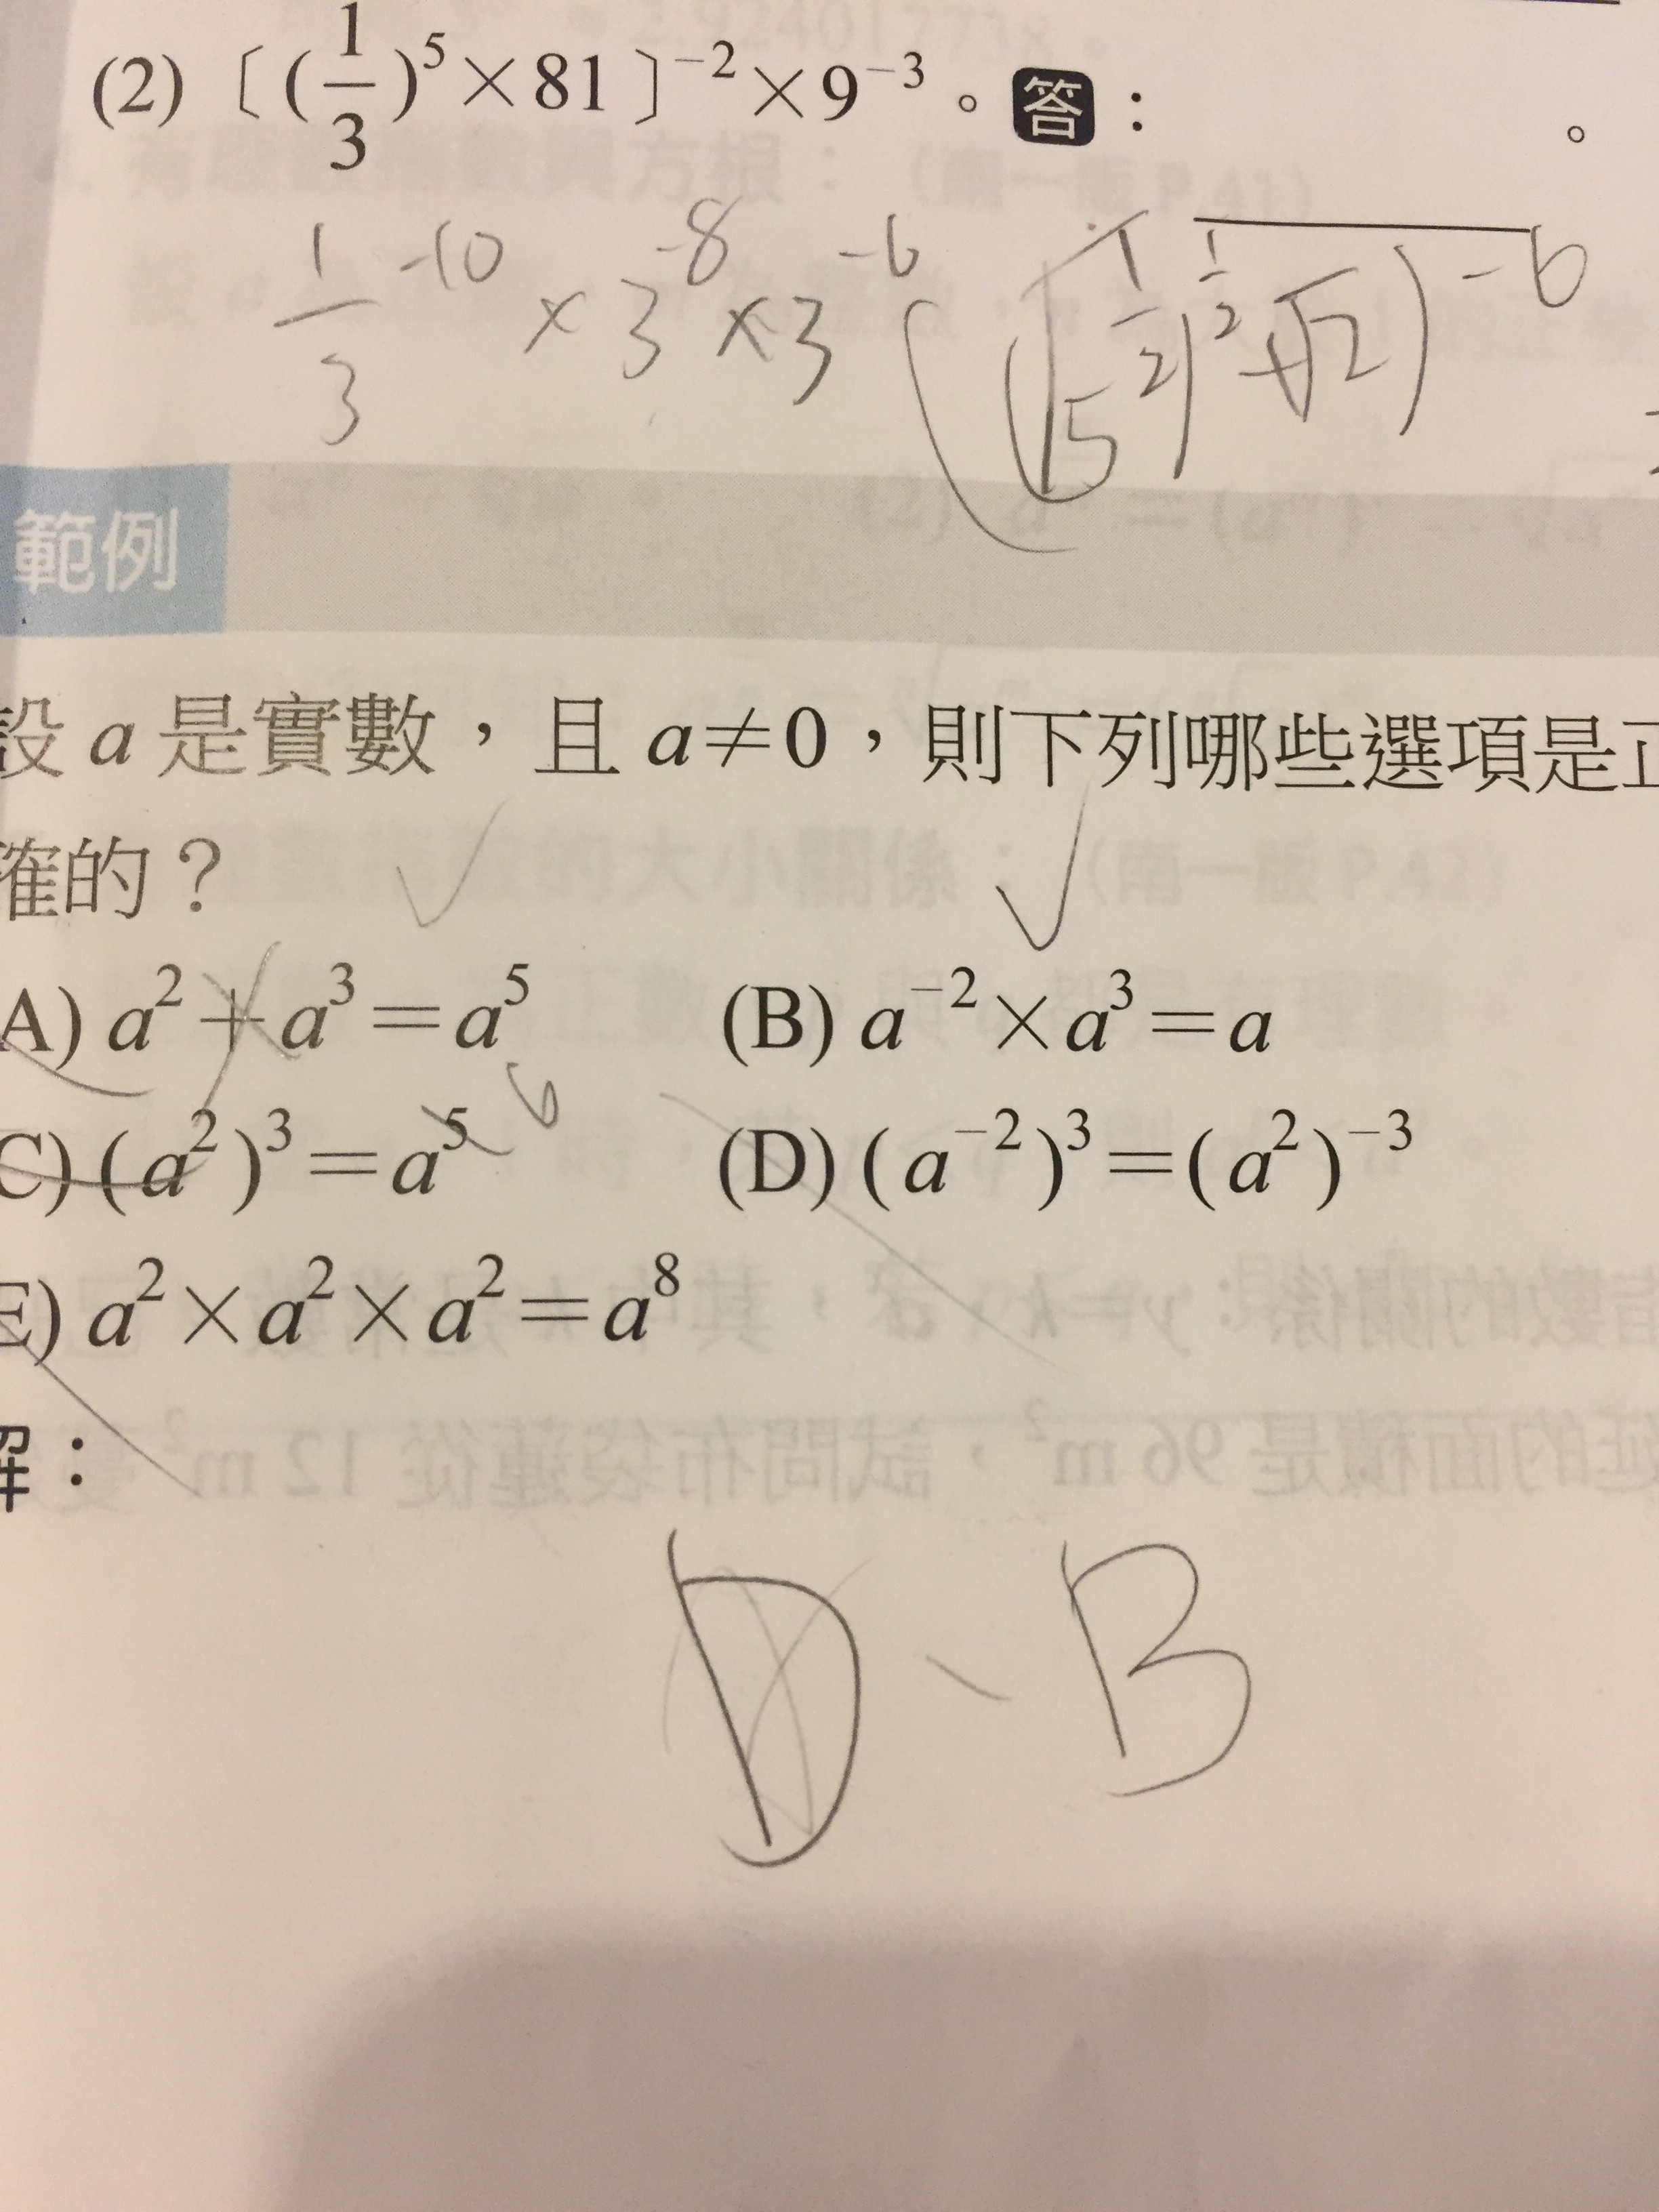 (2)〔(1/3)⁵×81〕⁻²×9⁻³。答：＿＿＿。
1/3 -10 × 3⁻⁸ × 3⁻⁶
範例
設 a 是實數，且 a≠0，則下列哪些選項是正
確的？
A) a²＋a³＝a⁵ (B) a⁻²×a³＝a
6
C) (a²)³＝a⁵ (D) (a⁻²)³＝(a²)⁻³
E) a²×a²×a²＝a⁸
解：
D、B